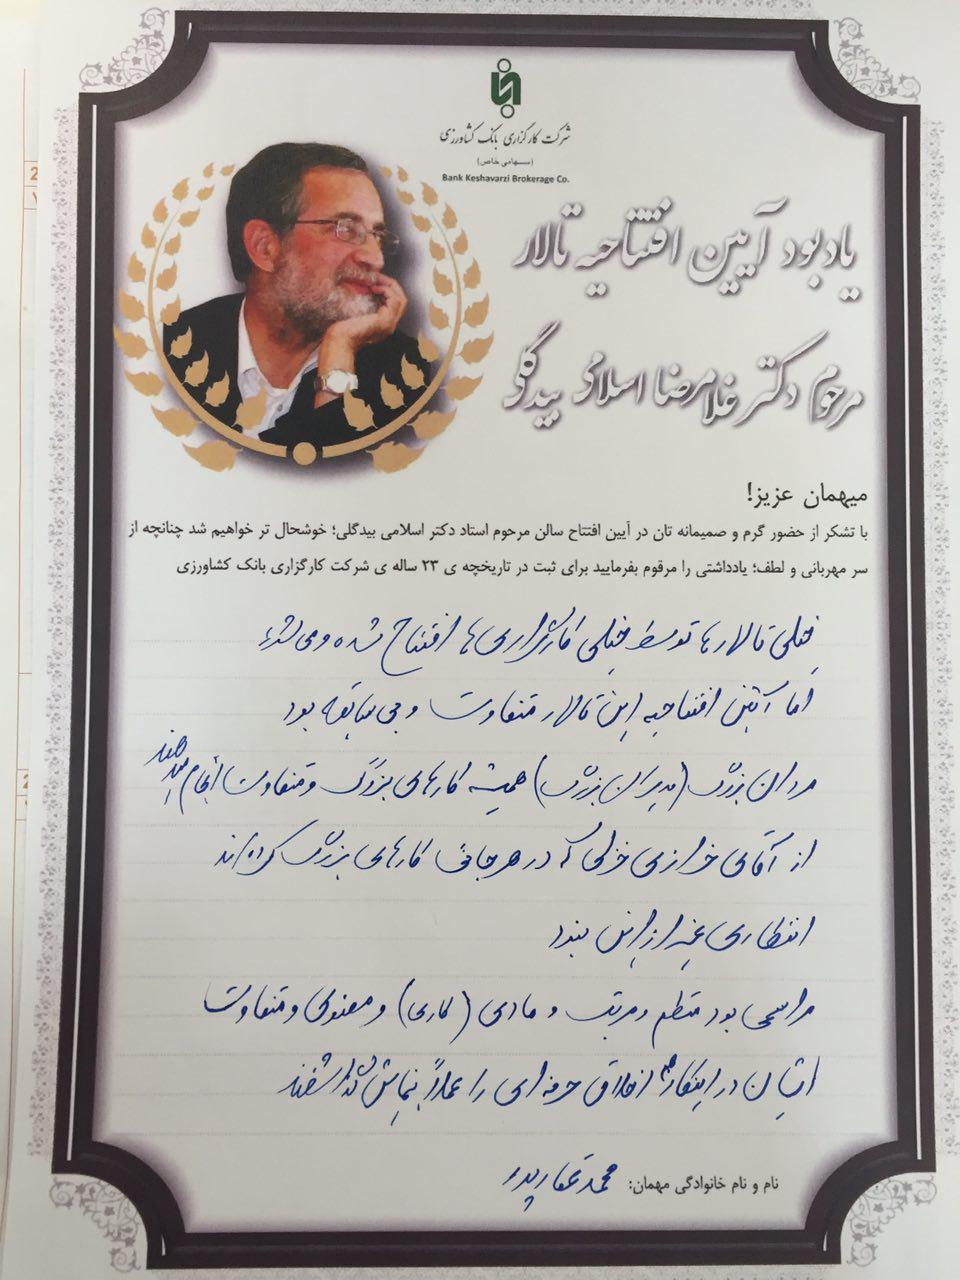 شرکت کارگزاری بانک کشاورزی
(سهامی خاص)
Bank Keshavarzi Brokerage Co.
یادبود آیین افتتاحیه تالار
مرحوم دکتر غلامرضا اسلامی بیدگلی
میهمان عزیز!
با تشکر از حضور گرم و صمیمانه تان در آیین افتتاح سالن مرحوم استاد دکتر اسلامی بیدگلی؛ خوشحال تر خواهیم شد چنانچه از
سر مهربانی و لطف؛ یادداشتی را مرقوم بفرمایید برای ثبت در تاریخچه ی ۲۳ ساله ی شرکت کارگزاری بانک کشاورزی
خیلی تالارها توسط خیلی کارگزاری ها افتتاح شده و می شود
اما آئین افتتاحیه این تالار متفاوت و بی سابقه بود
مردان بزرگ (مدیران بزرگ) همیشه کارهای بزرگ و متفاوت انجام میدهند
از آقای خزلی که در هر جائی کارهای بزرگ کرده اند
انتظاری غیر از این نبود
مراسمی بود منظم و مرتب و مادی (کاری) و معنوی و متفاوت
ایشان در اینکار اخلاق حرفه ای را عملاً بنمایش گذاشتند
نام و نام خانوادگی مهمان: محمد غفارپور